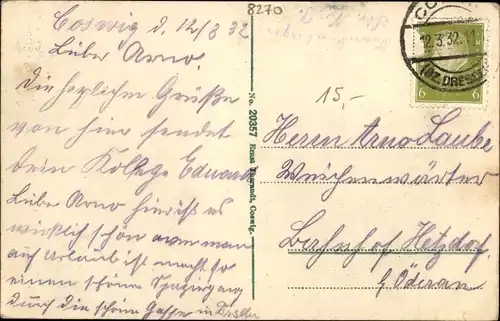 8270
Coswig d. 12/3 32
Lieber Arno.
Die herzlichen Grüße
von hier sendet
dein Kollege Eduard
Liebe Arno hier ist es
wirklich schön wenn man
auf Urlaub ist macht so
einen schönen Spaziergang
durch die schöne Gasse in Dresden
No. 20357 Ernst Coswig.
12.3.32.11
(BZ. DRESD
6 6
15,-
Herrn Arno Laube
Weichenwärter
Bahnhof Hetzdorf
b/ Öderan